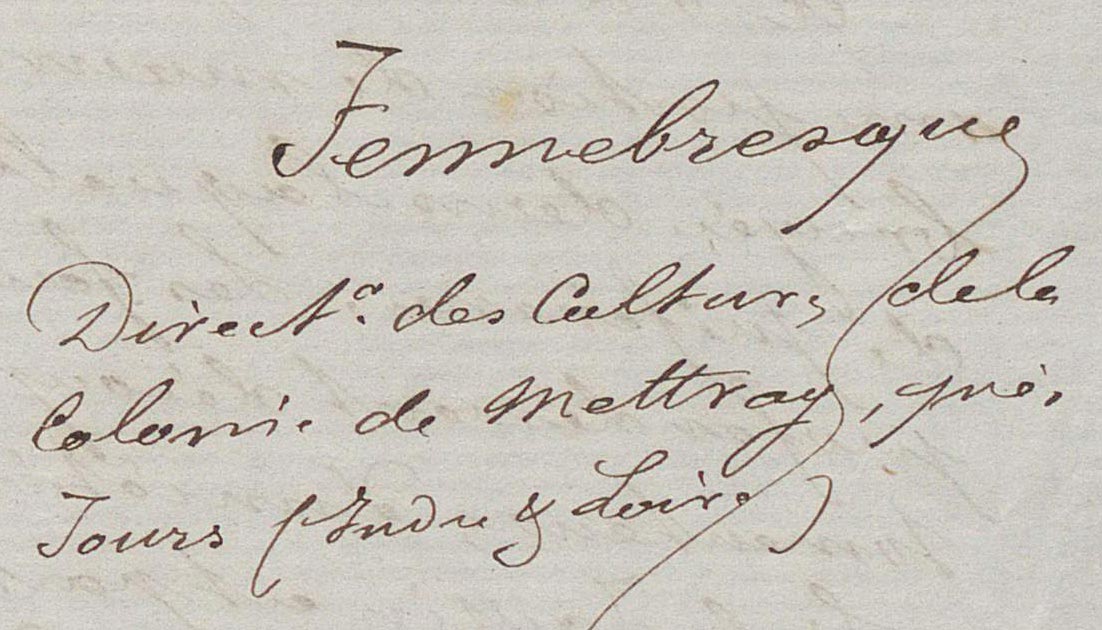 Fennebresque
Direct.r des Cultures de la
Colonie de Mettray, près
Tours (Indre & Loire)